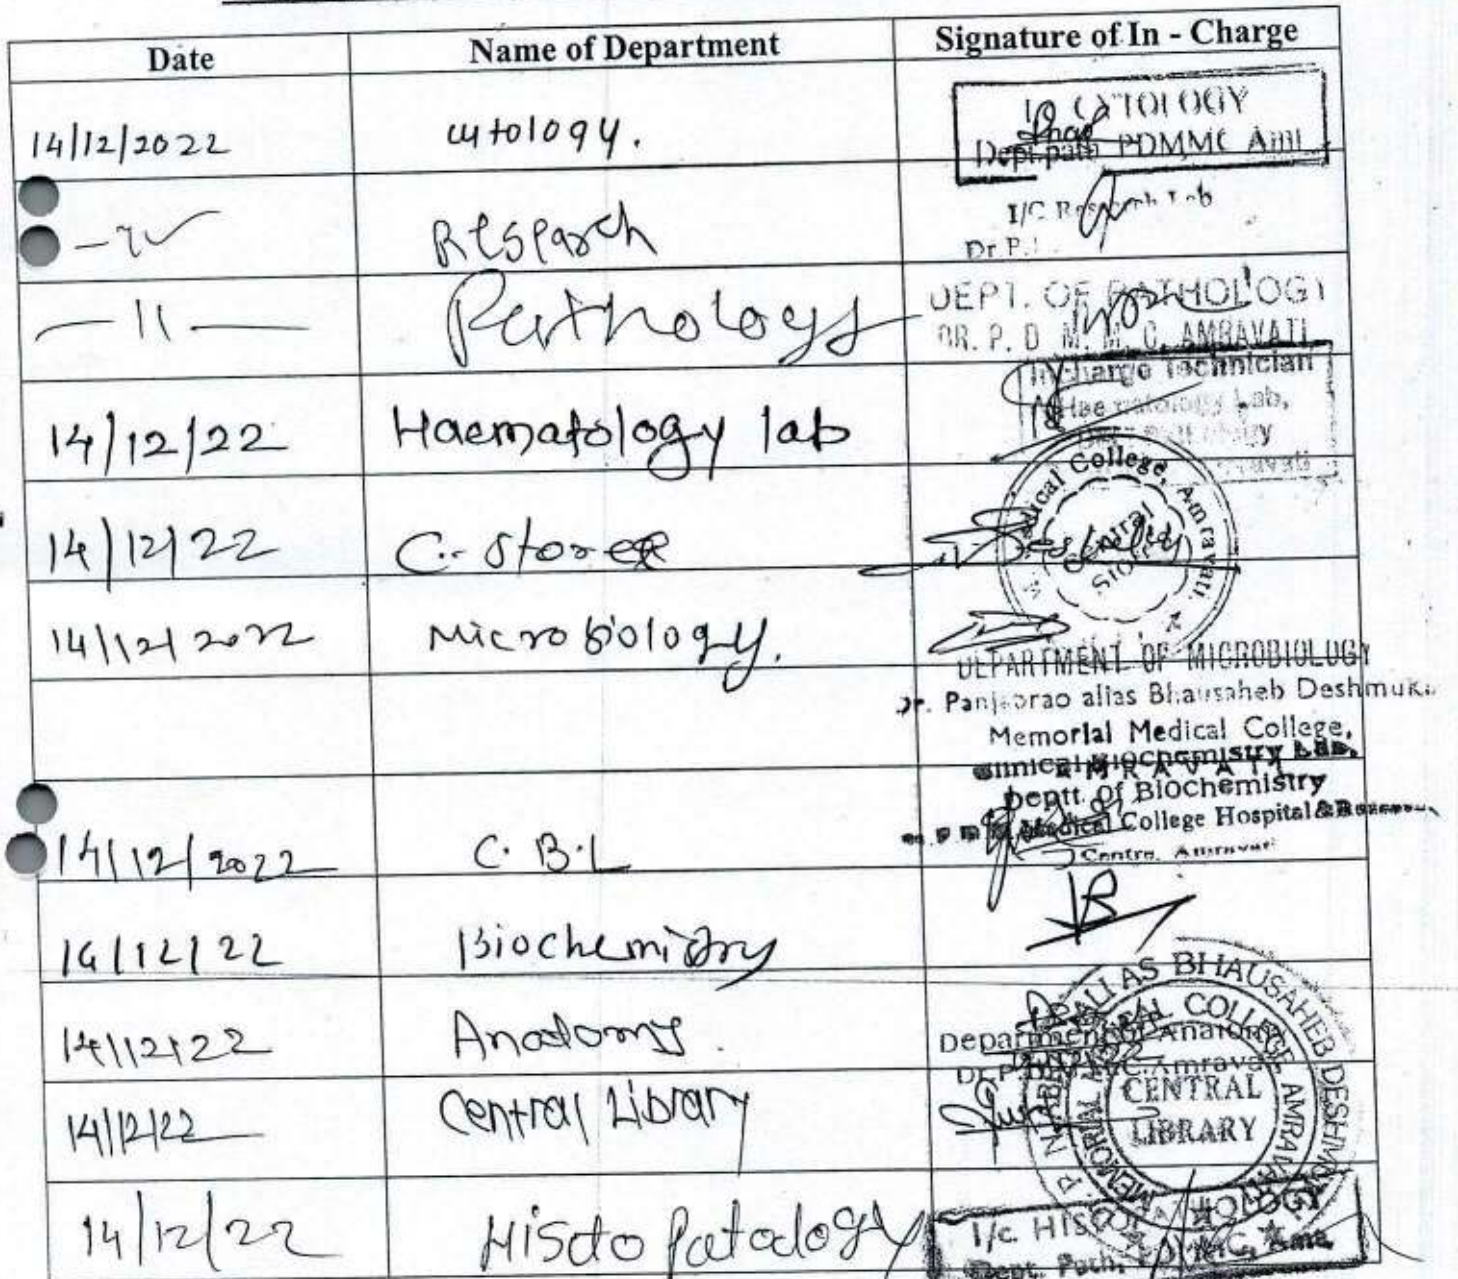 Date Name of Department Signature of In - Charge
14/12/2022 cytology. I/C CYTOLOGY
Dept. path PDMMC Amt.
Research I/C Research Lab
Dr. P.
— 11 — Pathology DEPT. OF PATHOLOGY
DR. P. D. M. M. C. AMRAVATI
14/12/22 Haematology lab Incharge Technician
Haematology Lab,
14/12/22 C. Store Medical College, Amravati
Central Store
14/12/2022 Microbiology. DEPARTMENT OF MICROBIOLOGY
Dr. Panjabrao alias Bhausaheb Deshmukh
Memorial Medical College,
AMRAVATI
Clinical Biochemistry Lab.
Deptt. Of Biochemistry
14/12/2022 C. B. L Medical College Hospital &
Centre, Amravati
14/12/22 Biochemistry
14/12/22 Anatomy. Department of Anatomy
Amravati
14/12/22 Central Library ALIAS BHAUSAHEB DESHMUKH
MEMORIAL MEDICAL COLLEGE AMRAVATI
CENTRAL
LIBRARY
14/12/22 Histo Patology I/c. HISTOPATHOLOGY
Dept. Path.